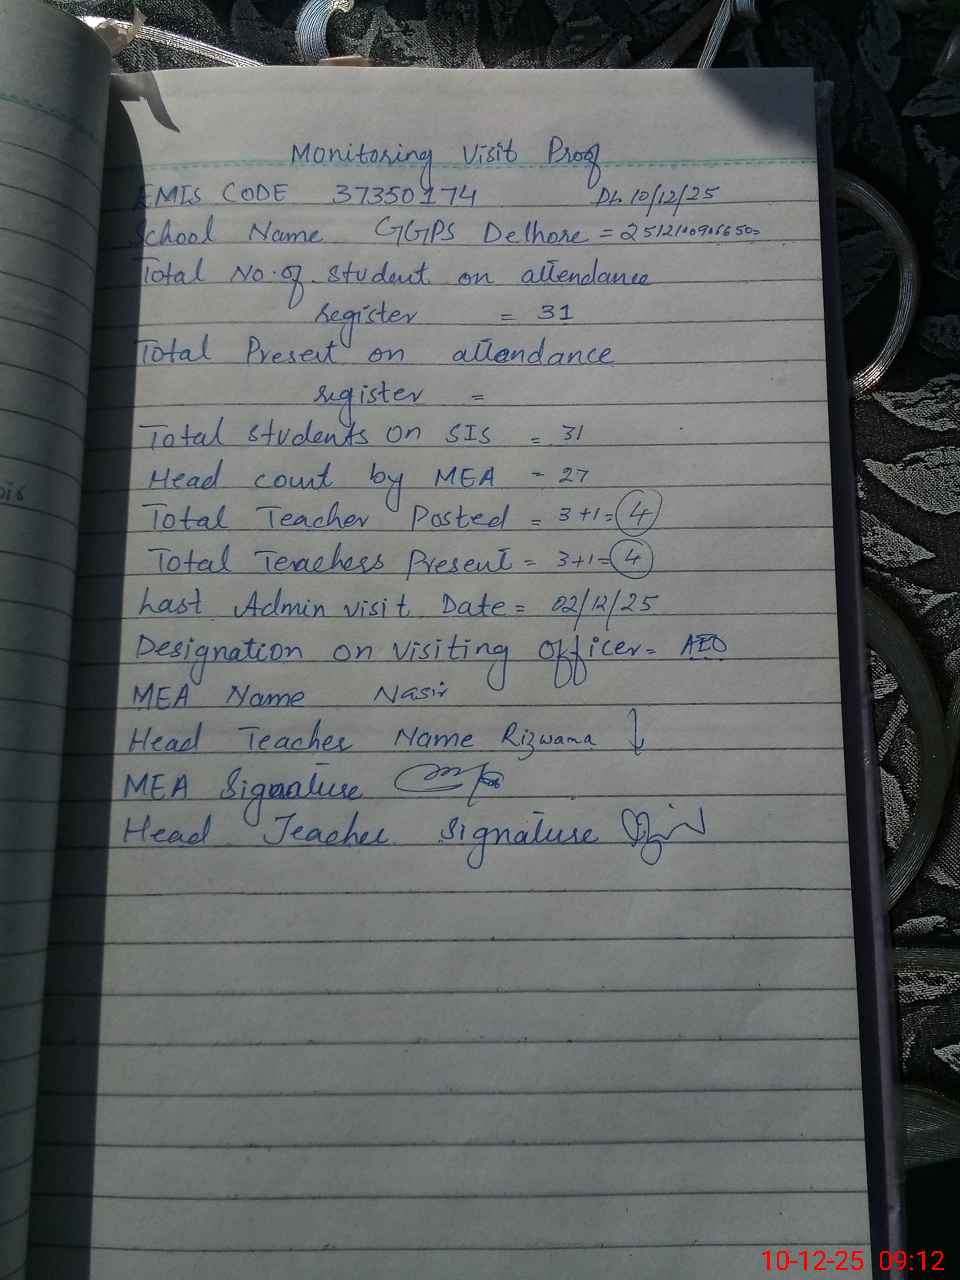 Monitoring Visit Proof
EMIS CODE 37350174 Dt. 10/12/25
School Name GGPS Delhore =
Total No. of student on attendance
register = 31
Total Present on attendance
register =
Total students on SIS = 31
Head count by MEA = 27
Total Teacher Posted = 3+1= 4
Total Teachers Present = 3+1= 4
Last Admin visit Date = 02/12/25
Designation on visiting officer = AEO
MEA Name Nasir
Head Teacher Name Rizwana ↓
MEA Signature
Head Teacher Signature
10-12-25 09:12